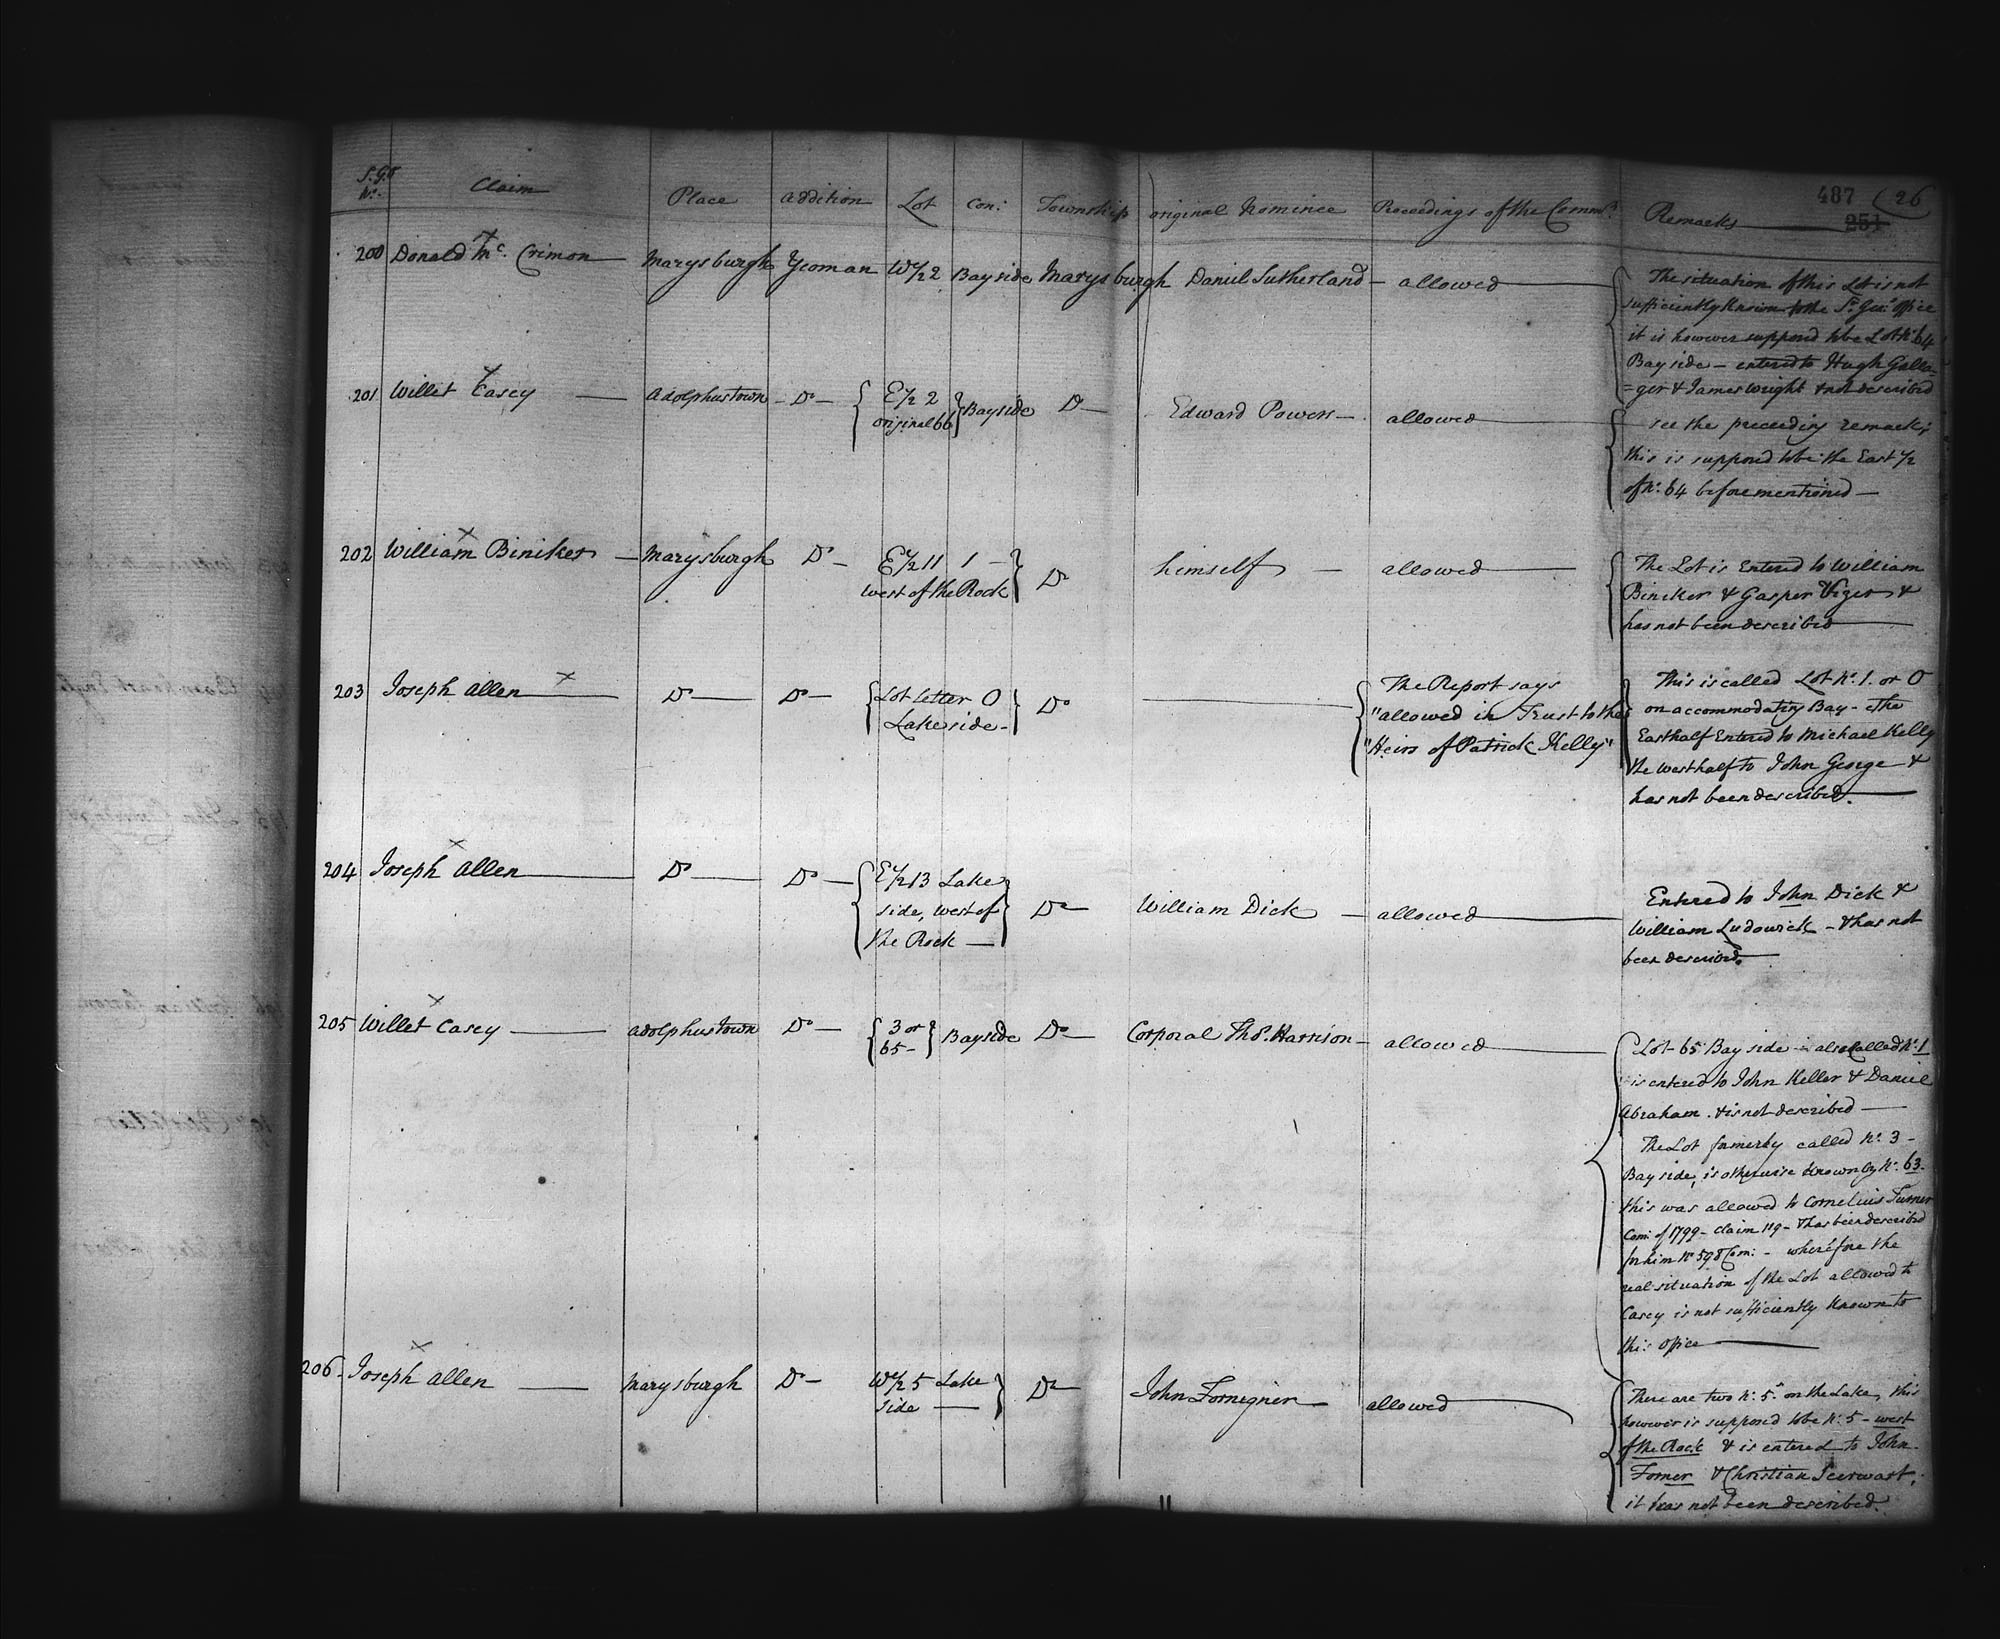 487 (26
251
S.G.O
No. Claim Place Addition Lot Con: Township original Nominee Proceedings of the Commrs. Remarks
200 Donald Mc. Crimon Marysburgh Yeoman W1/2 2 Bay side Marysburgh Daniel Sutherland - allowed
The situation of this Lot is not
sufficiently known to the Sr. Genl. office
it is however supposed to be Lot No. 64
Bay side - entered to Hugh Galla-
=ger & James Wright & not described
201 Willet Casey Adolphustown - Do - E1/2 2 Bayside Do - Edward Powers - allowed
original 66
see the preceeding remark;
this is supposed to be the East 1/2
of No. 64 before mentioned -
202 William Biniker - Marysburgh Do - E1/2 11 1 - Do himself - allowed
West of the Rock
The Lot is Entered to William
Biniker & Gasper &
has not been described
203 Joseph Allen Do - Do - Lot letter O Do
Lake side -
The Report says
"allowed in Trust to the
"Heirs of Patrick Kelly"
This is called Lot No. 1. or O
on accommodating Bay - The
East half Entered to Michael Kelly
the West half to John George &
has not been described.
204 Joseph Allen Do Do - E1/2 13 Lake Do - William Dick - allowed
side, West of
the Rock -
Entered to John Dick &
William Ludowick - & has not
been described.
205 Willet Casey Adolphustown Do - 3 or Bayside Do - Corporal Thos. Harrison - allowed
65 -
Lot 65 Bay side - is also Called No. 1
is entered to John Keller & Daniel
Abraham . & is not described -
The Lot formerly called No. 3 -
Bay side, is otherwise known by No. 63 -
this was allowed to Cornelius Turner
Com: of 1799 - Claim 119 - & has been described
for him No 598 Com: - wherefore the
real situation of the Lot allowed to
Casey is not sufficiently known to
this office
206 - Joseph Allen Marysburgh Do - W1/2 5 Lake Do - John Forneigner allowed
side -
There are two No. 5s. on the Lake, this
however is supposed to be No. 5 - west
of the Rock & is entered to John
Forner & Christian Seerwart,
it has not been described.